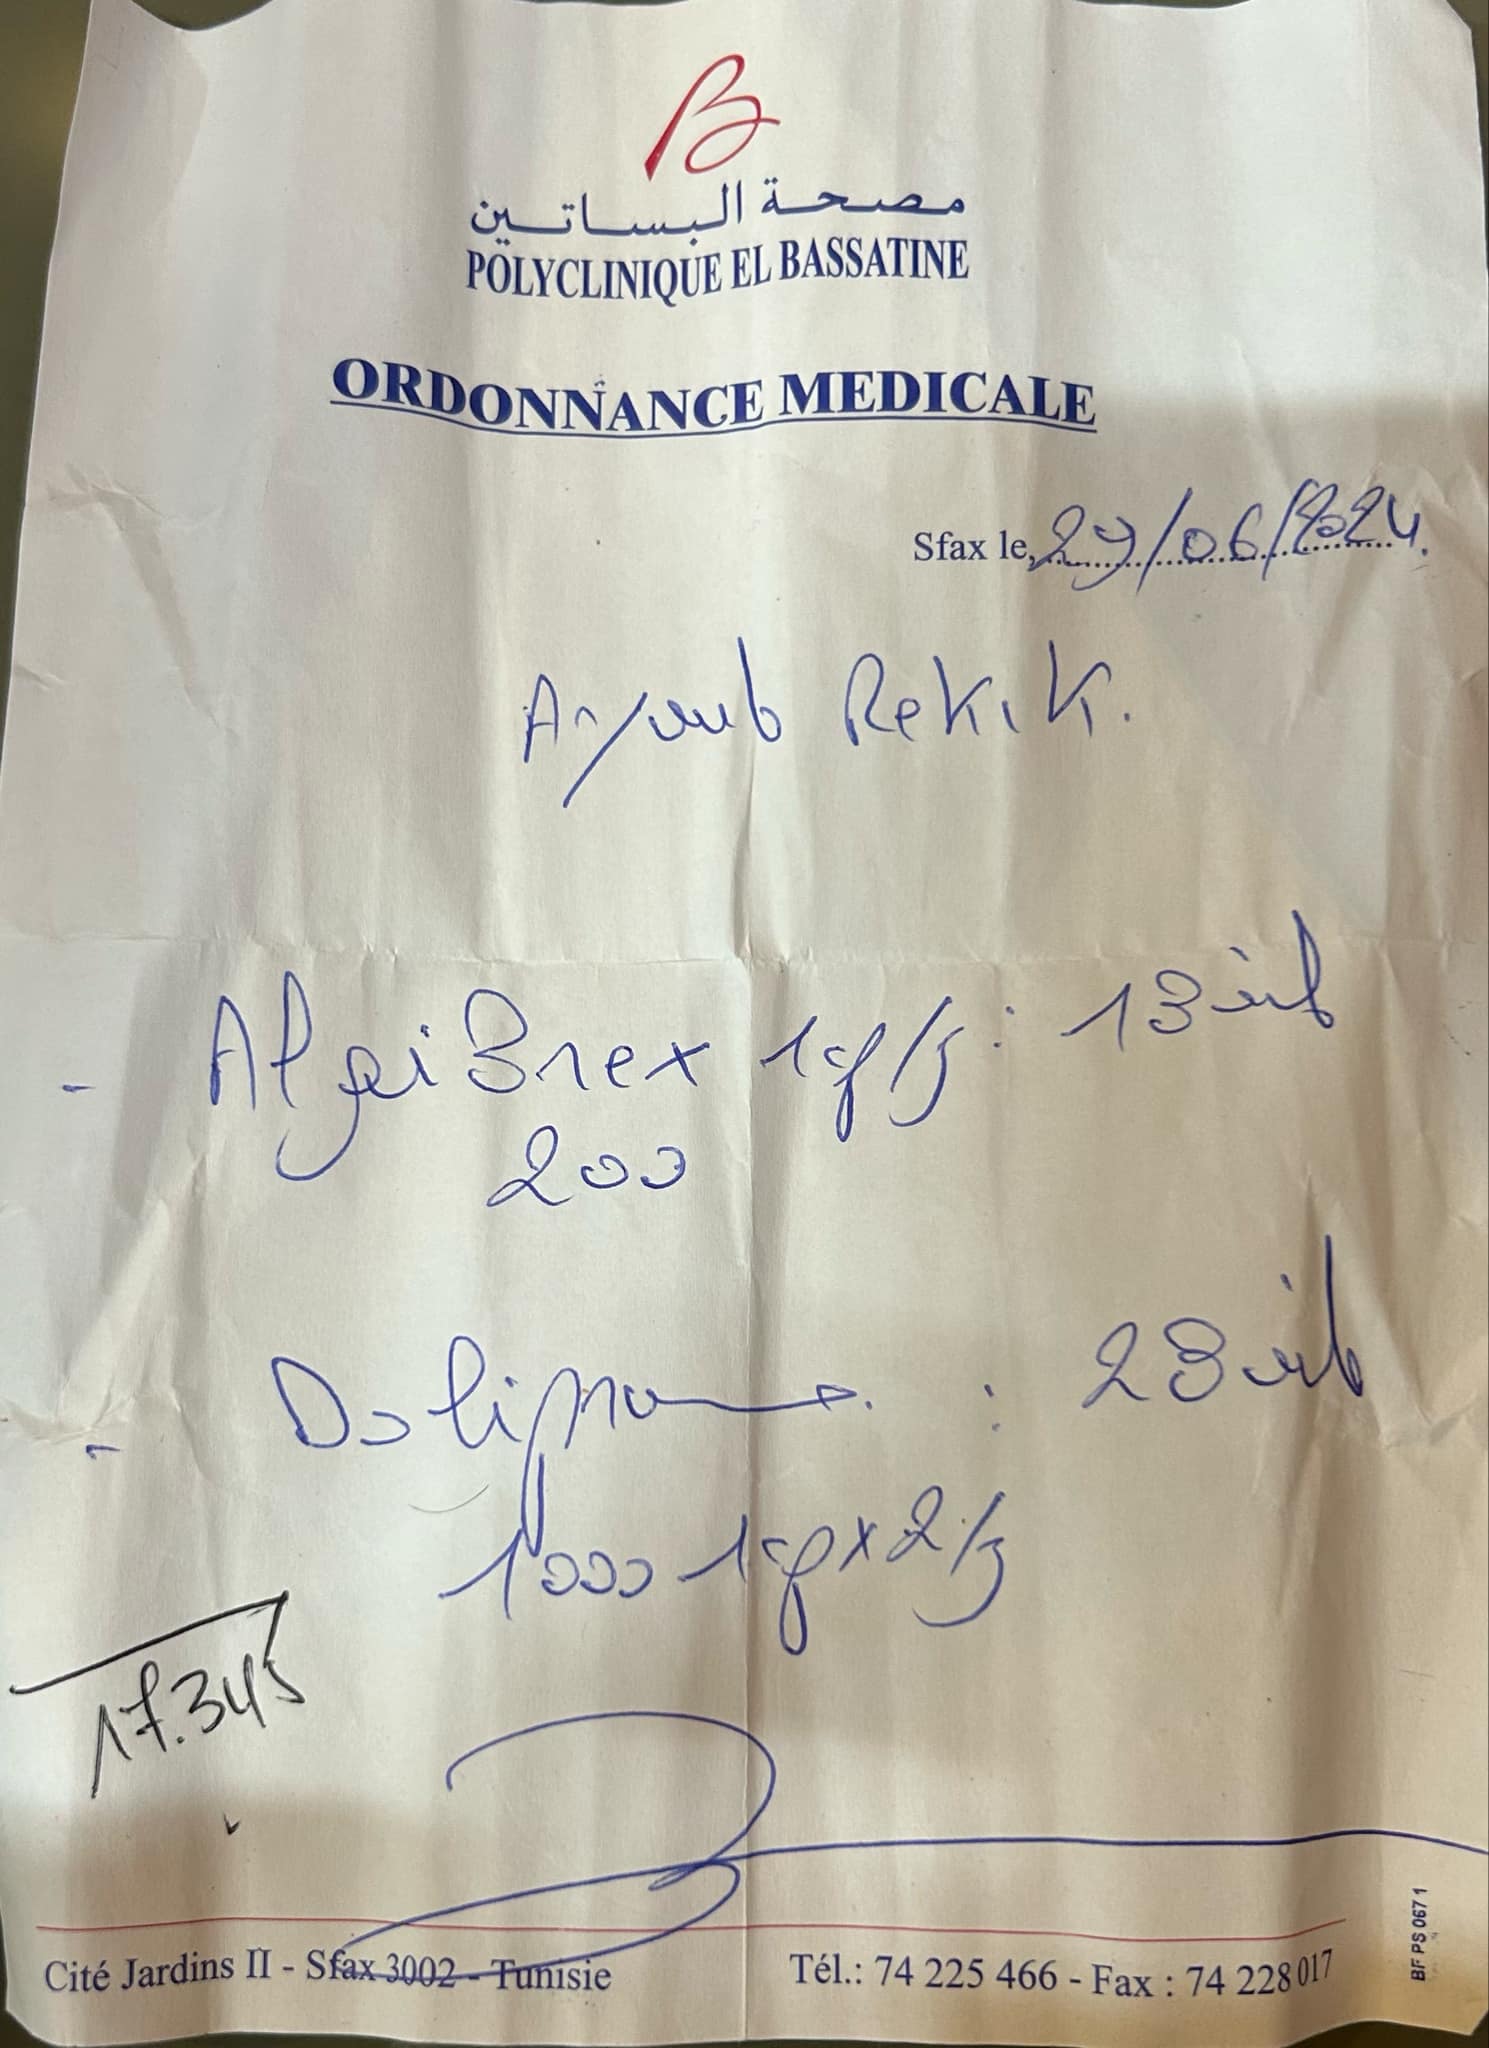 مصحة البساتين
POLYCLINIQUE EL BASSATINE
ORDONNANCE MEDICALE
Sfax le, 29/06/2024
Ayoub Rekik.
- AlgiBrex 1cp/j : 1 Boit
200
- Doliprane : 2 Boit
1000 1cp x 2/j
17.345
Cité Jardins II - Sfax 3002 - Tunisie Tél.: 74 225 466 - Fax : 74 228 017
BF PS 067 1